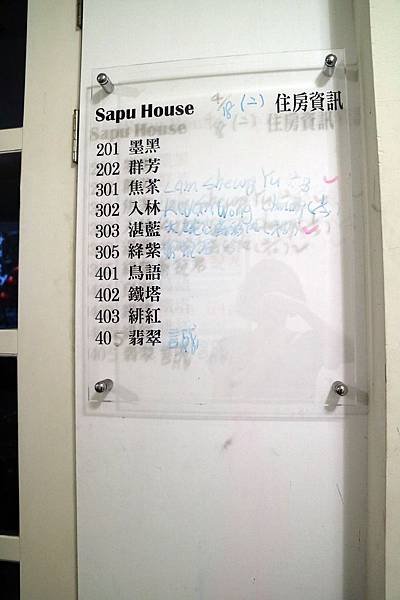 Sapu House 4/18 (二) 住房資訊
201 墨黑
202 群芳
301 焦茶 Lam Sheung Yu
302 入林
303 湛藍
305 絳紫
401 鳥語
402 鐵塔
403 緋紅
405 翡翠 誠